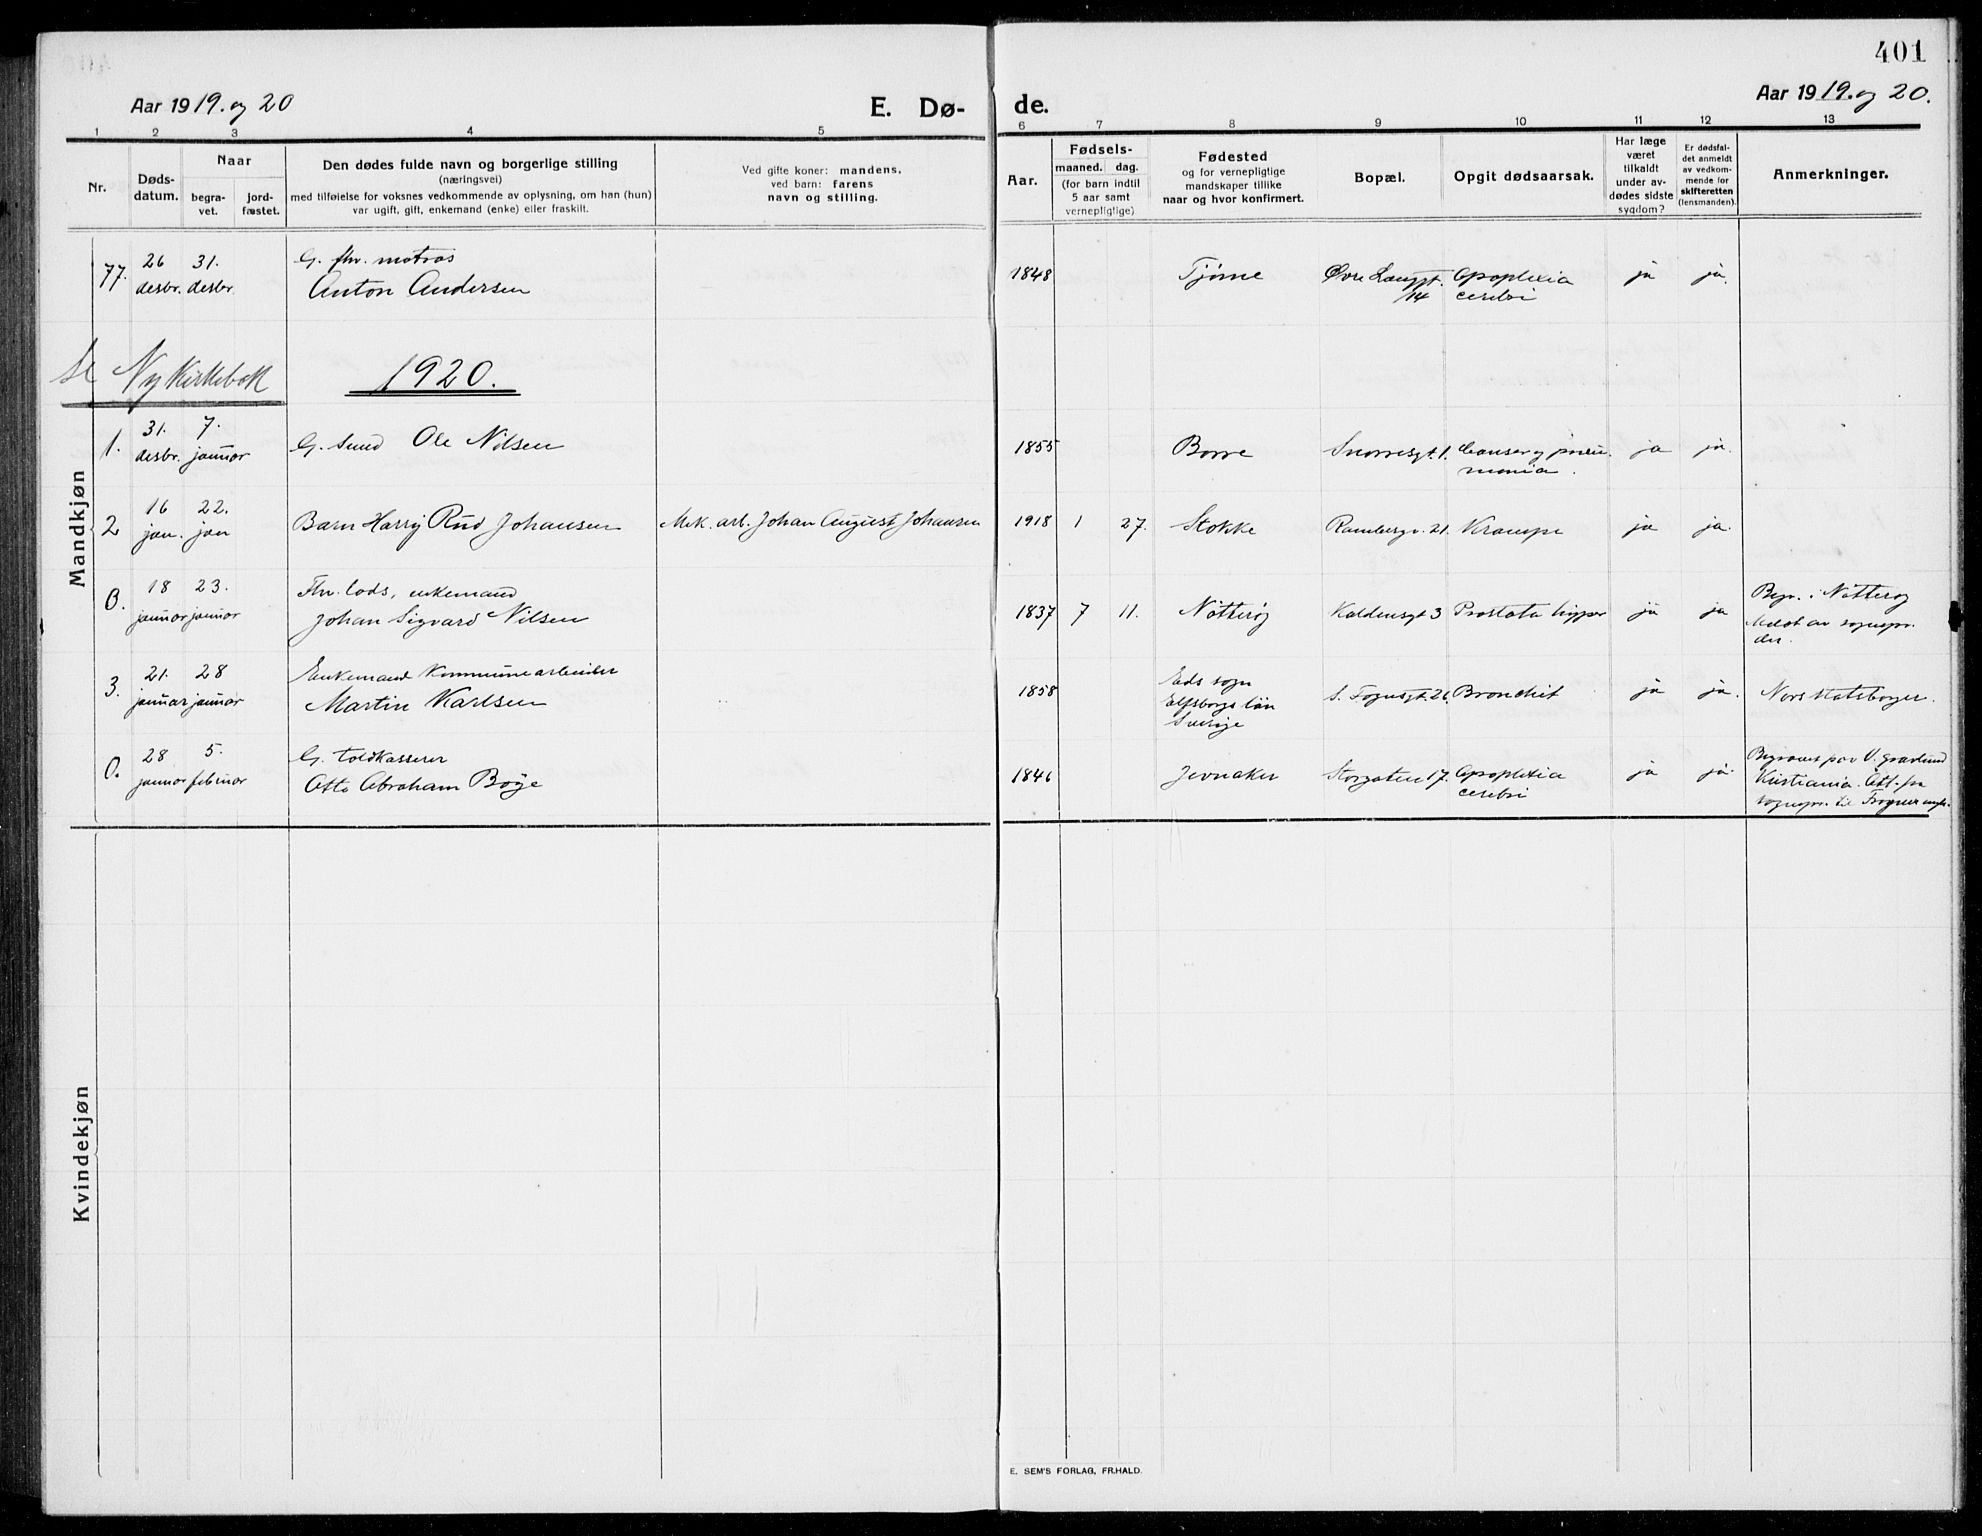 401
Aar 1919. og 20
E. Dø-
de.
Aar 1919. og 20.
1 2 3 4 5 6 7 8 9 10 11 12 13
Nr.
Døds-
datum.
Naar
begra-
vet.
jord-
fæstet.
Den dødes fulde navn og borgerlige stilling
(næringsvei)
med tilføielse for voksnes vedkommende av oplysning, om han (hun)
var ugift, gift, enkemand (enke) eller fraskilt.
Ved gifte koner: mandens,
ved barn: farens
navn og stilling.
Aar.
Fødsels-
maaned. dag.
(for barn indtil
5 aar samt
vernepligtige)
Fødested
og for vernepligtige
mandskaper tillike
naar og hvor konfirmert.
Bopæl.
Opgit dødsaarsak.
Har læge
været
tilkaldt
under av-
dødes sidste
sygdom?
Er dødsfal-
det anmeldt
av vedkom-
mende for
skifteretten
(lensmanden).
Anmerkninger.
77. 26 desbr. 31. desbr.
G. fhv. matros
Anton Andersen
1848 Tjøme Øvre Langgt. 14 Apoplexia
cerebri ja ja.
Se Ny Kirkebok
1920.
Mandkjøn
1. 31. desbr. 7. januar
G. Ole Nilsen
1855 Borre Snorresgt. 1. Cancer og pneu-
monia. ja ja.
2 16 jan. 22. jan
Barn Harry Rud Johansen
Mek. arb. Johan August Johansen
1918 1 27. Stokke Rambergv. 21. Krampe ja ja.
0. 18 januar 23. januar
Fhv. lods, enkemand
Johan Sigvard Nilsen
1837 7 11. Nøtterøy Kaldensgt 3 Prostata hyper ja ja
Begr. i Nøtterøy
Meldt av sognepr.
der.
3. 21. januar 28 januar
Enkemand Kommunearbeider
Martin Karlsen
1858 Eds sogn
Elfsborgs län
Sverige
S. Fogusgt. 26. Bronchit ja ja. Nors statsborger.
0. 28 januar 5. februar
G. toldkasserer
Otto Abraham Bøye
1846 Jevnaker Storgaten 17. Apoplexia
cerebri ja ja.
Begravet paa V. gravlund
Kristiania. Att. fra
sognepr. til Frogner
Kvindekjøn
E. SEM'S FORLAG, FR.HALD.